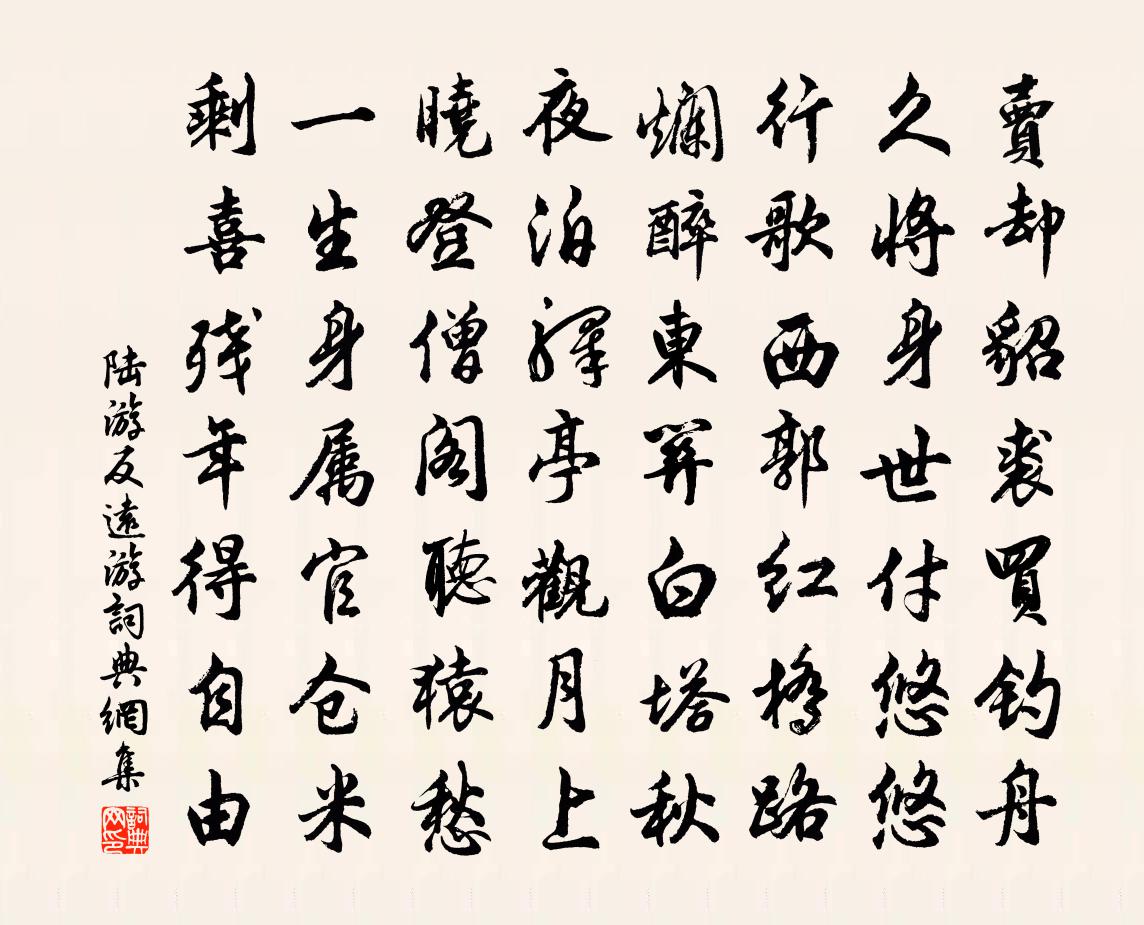 賣却貂裘買釣舟
久將身世付悠悠
行歌西郭紅橋路
爛醉東關白塔秋
夜泊驛亭觀月上
曉登僧閣聽猿愁
一生身属官仓米
剩喜残年得自由
陆游反遠游詞典網集
詞典網印